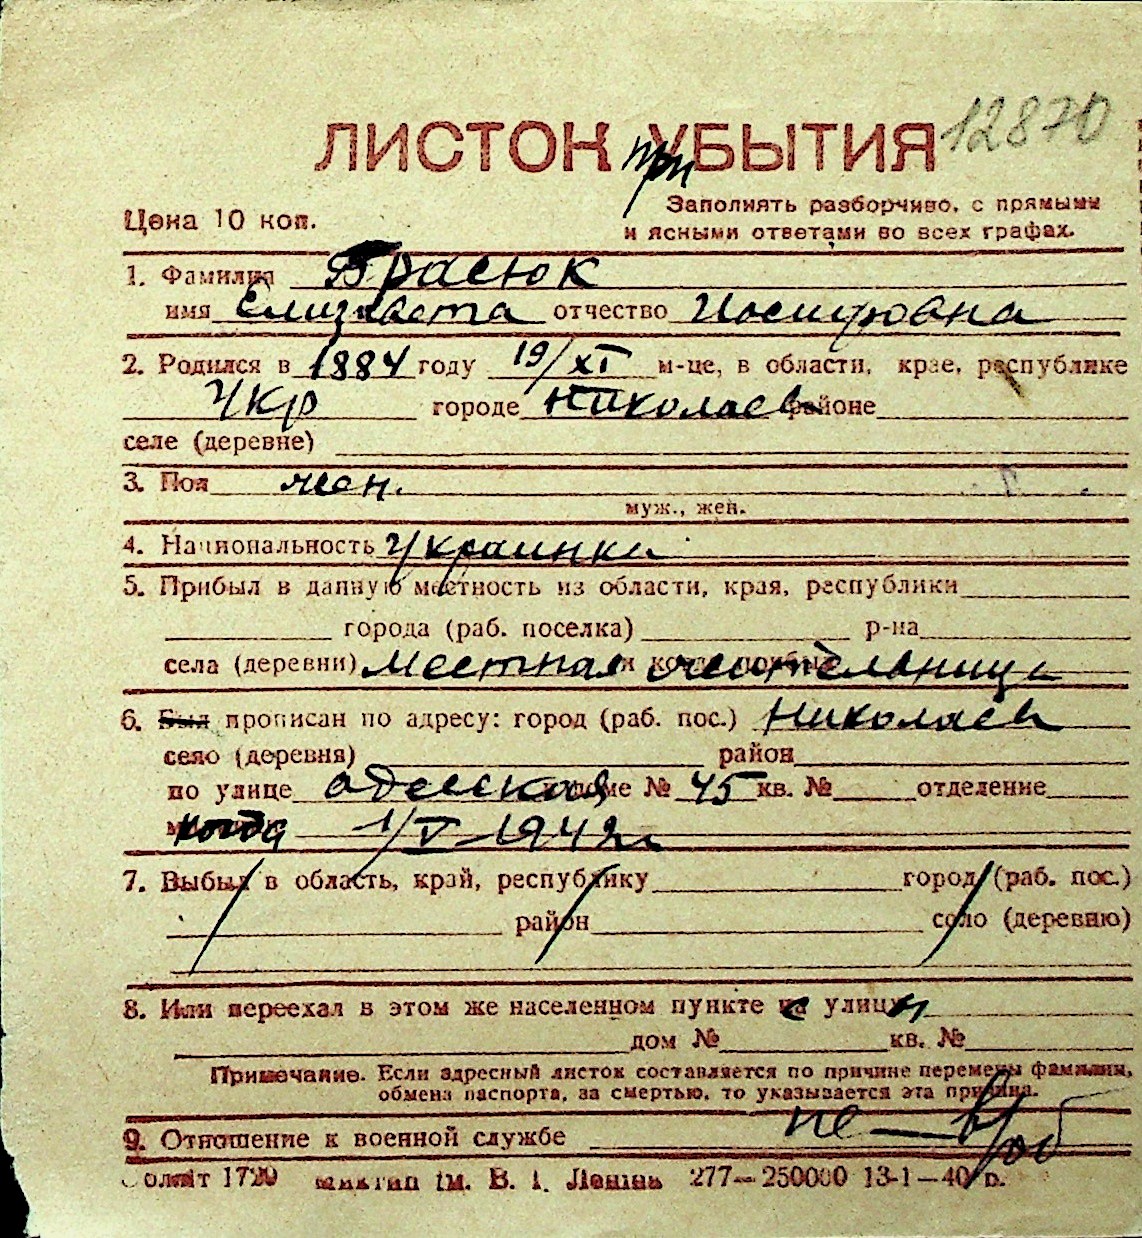 12870
ЛИСТОК при УБЫТИЯ
Цена 10 коп.
Заполнять разборчиво, с прямыми
и ясными ответами во всех графах.
1. Фамилия Брасюк
имя Елизавета отчество Иосифовна
2. Родился в 1884 году 19/XI м-це, в области, крае, республике
Укр городе Николаев районе
селе (деревне)
3. Пол жен.
муж., жен.
4. Национальность Украинка
5. Прибыл в данную местность из области, края, республики
города (раб. поселка) р-на
села (деревни) местная жительница
6. Был прописан по адресу: город (раб. пос.) Николаев
село (деревня) район
по улице одесская доме № 45 кв. № отделение
когда 1/V 1942 г
7. Выбыл в область, край, республику город (раб. пос.)
район село (деревню)
8. Или переехал в этом же населенном пункте с улицы
дом № кв. №
Примечание. Если адресный листок составляется по причине перемены фамилии,
обмена паспорта, за смертью, то указывается эта причина.
9. Отношение к военной службе не в/об
277—250000 13-1—40 р.
ім. В. І. Леніна